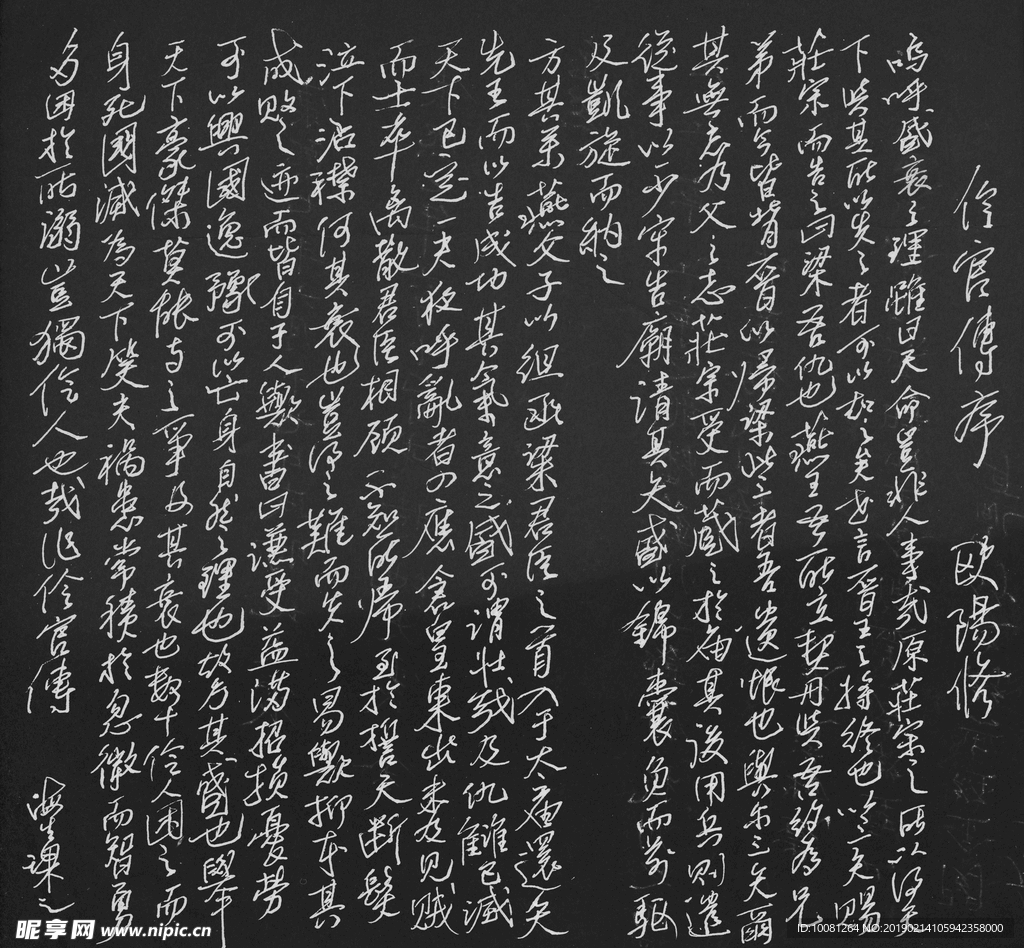 伶官傳序 欧陽修
嗚呼盛衰之理雖曰天命豈非人事哉原莊宗之所以得天
下與其所以失之者可以知之矣世言晉王之將終也以三矢賜
莊宗而告之曰梁吾仇也燕王吾所立契丹與吾約為兄
弟而今皆背晉以歸梁此三者吾遺恨也與尔三矢爾
其無忘乃父之志莊宗受而藏之於廟其後用兵則遣
從事以少牢告廟請其矢盛以錦囊負而前驅
及凱旋而納之
方其系燕父子以組函梁君臣之首入于太廟還矢
先王而以告成功其氣意之盛可謂壯哉及仇讎已滅
天下已定一夫夜呼亂者四應倉皇東出未及見賊
而士卒离散君臣相顧不知所歸至於誓天斷髮
泣下沾襟何其衰也豈得之難而失之易歟抑本其
成敗之迹而皆自于人歟書曰謙受益滿招損憂勞
可以興國逸豫可以亡身自然之理也故方其盛也舉
天下豪傑莫能與之爭及其衰也數十伶人困之而
身死國滅為天下笑夫禍患常積於忽微而智勇
多困於所溺豈獨伶人也哉作伶官傳
昵享网 www.nipic.cn
ID:10081264 NO:20190214105942358000